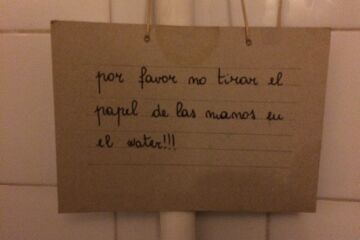 por favor no tirar el
papel de las manos en
el water!!!